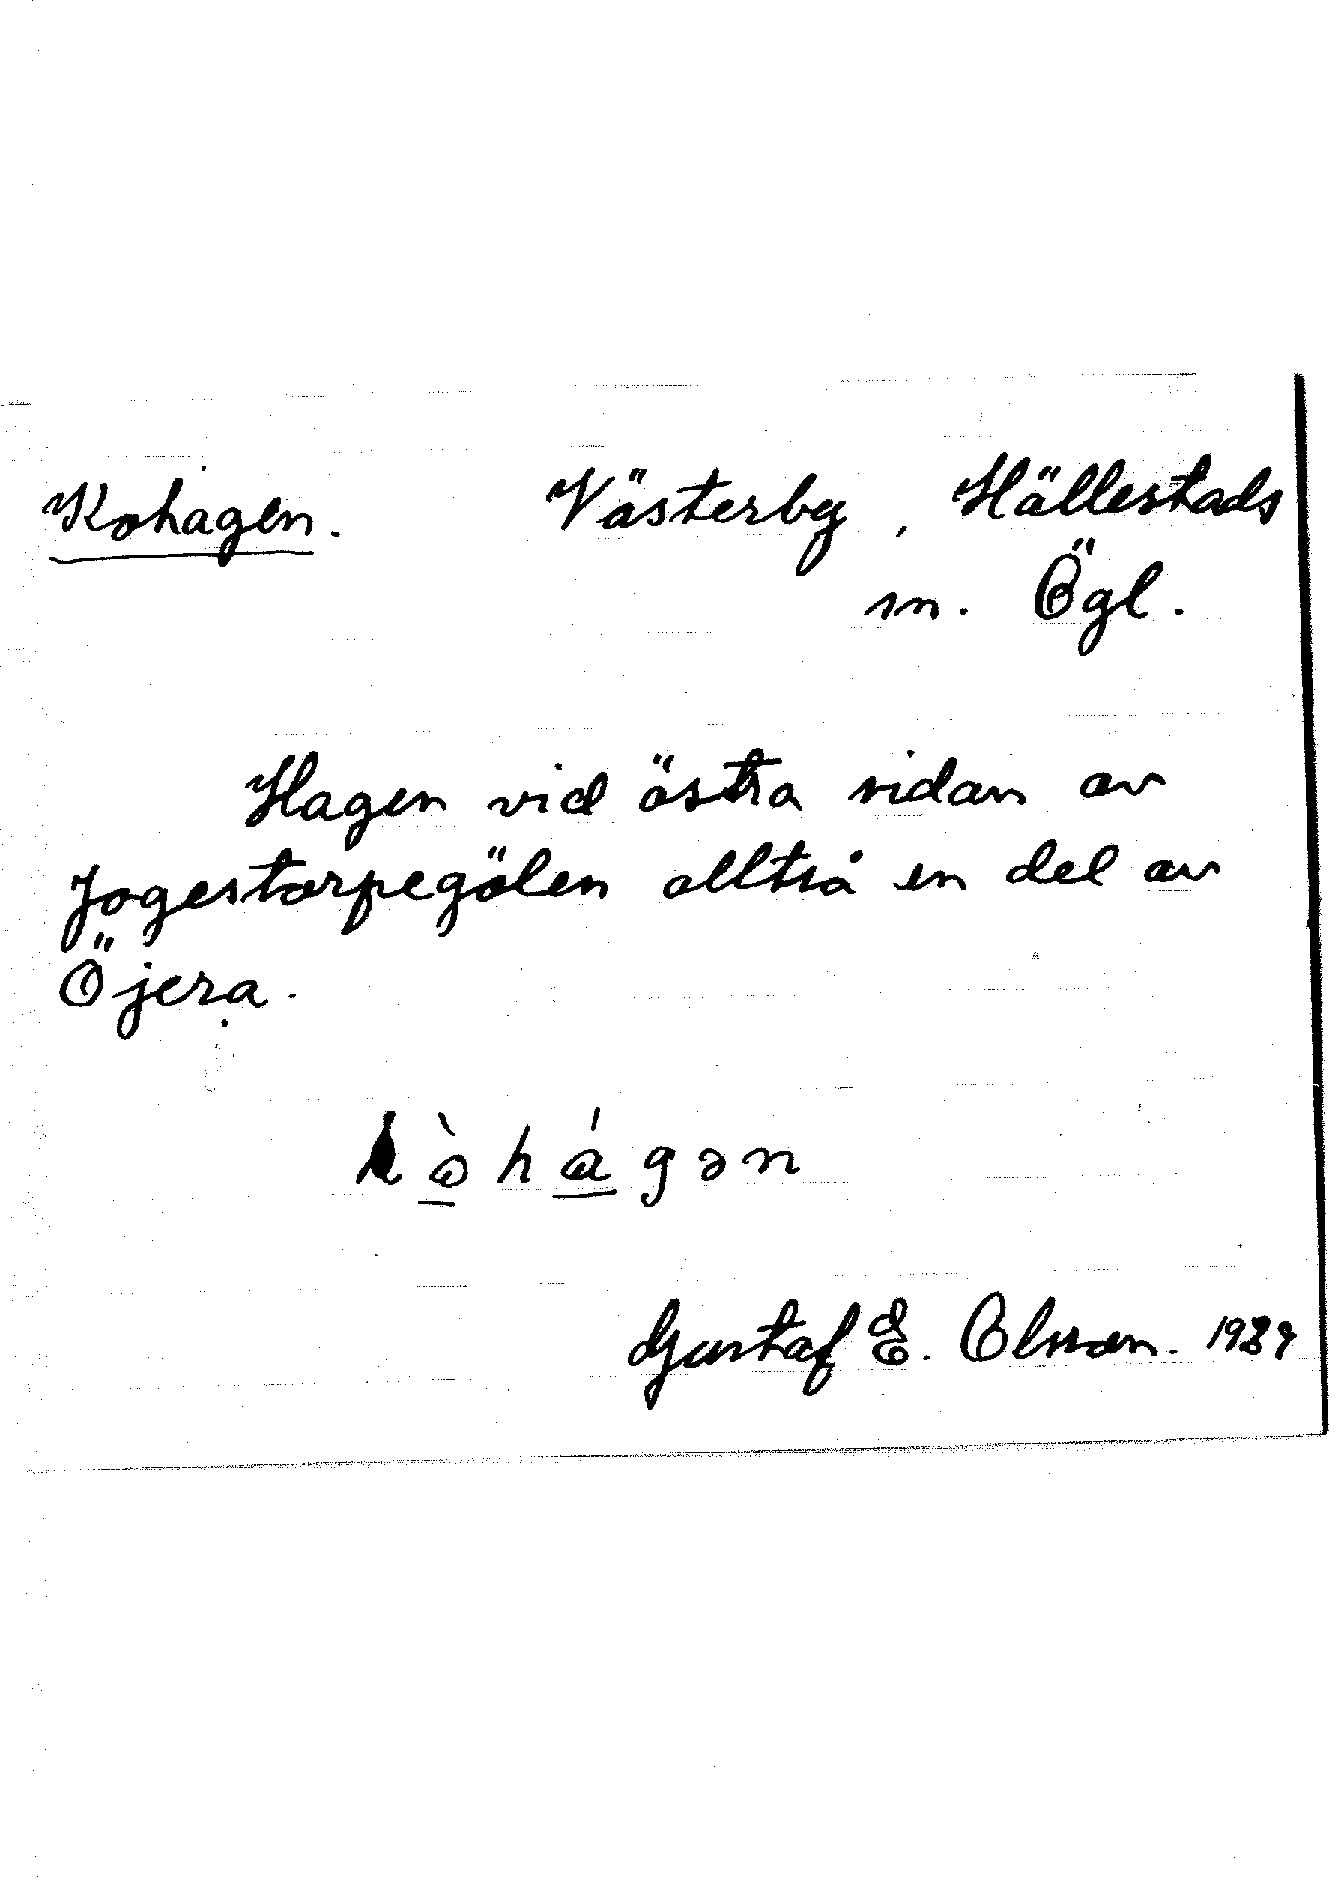 Kohagen. Västerby, Hällestads
sn. Ögl.
Hagen vid östra sidan av
Jogestorpegölen alltså en del av
Öjera.
kòhágən
Gustaf E. Olsson.